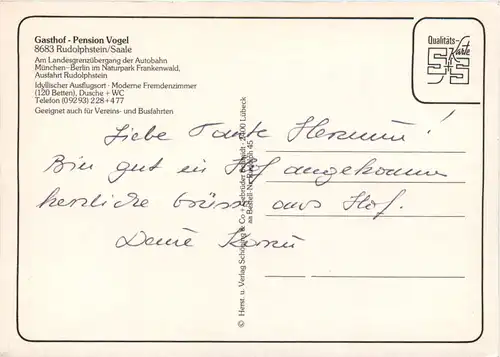 Gasthof - Pension Vogel
8683 Rudolphstein/Saale
Am Landesgrenzübergang der Autobahn
München-Berlin im Naturpark Frankenwald,
Ausfahrt Rudolphstein
Idyllischer Ausflugsort · Moderne Fremdenzimmer
(120 Betten), Dusche + WC
Telefon (09293) 228+477
Geeignet auch für Vereins- und Busfahrten
Qualitäts-
Karte
Liebe Tante Hermine!
Bin gut in Hof angekommen
herzliche Grüsse aus Hof.
Deine
© Herst. u. Verlag Schöning & Co + Gebrüder Schmidt · 2400 Lübeck